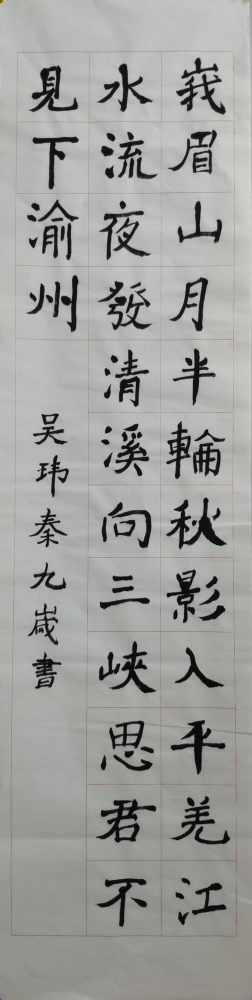 峩眉山月半輪秋影入平羌江
水流夜發清溪向三峽思君不
見下渝州
吴玮秦九歲書